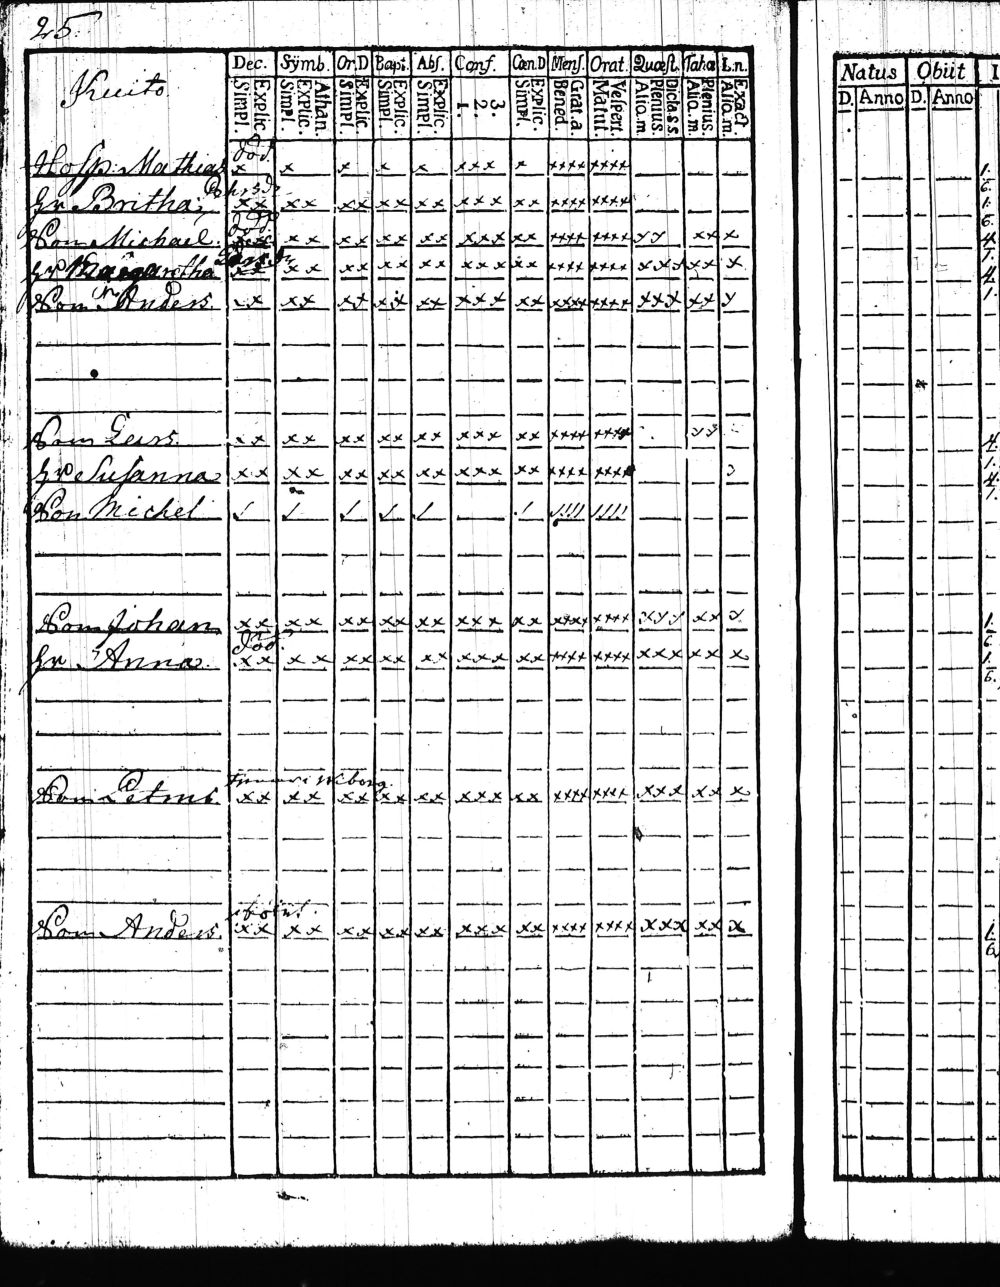 25.
Kuito
Dec. Sÿmb. Or.D Bapt. Abs. Conf. Cœn.D Mens. Orat. Quæst. Tabæ L.n.
Explic. Simpl. Athan. Explic. Simpl. Explic. Simpl. Explic. Simpl. Explic. Simpl. 3. 2. 1. Explic. Simpl. Grat. a. Bened. Vespert. Matut. Dicta s s Plenius. Aliq. m. Plenius. Aliq. m. Exact. Aliq. m.
Natus Obiit
D. Anno D. Anno
död.
Hosp: Mathias x x x x x xxx x xxxx xxxx
Hr Britha xx xx xx xx xx xxx xx xxxx xxxx
död.
Son Michael. xx xx xx xx xxx xx xxxx xxxx xx xxx
Hr Margaretha xx xx xx xx xx xxx xx xxxx xxxx xxx xx x
Son Anders. xx xx xx xx xx xxx xx xxxx xxxx xxx xx x
Son Lars. xx xx xx xx xx xxx xx xxxx xxxx xx
Hr Susanna xx xx xx xx xx xxx xx xxxx xxxx
Son Michel / / / / / / //// ////
Son Johan xx xx xx xx xx xxx xx xxxx xxxx xxx xx x
död.
Hr Anna. xx xx xx xx xx xxx xx xxxx xxxx xxx xx x
Wiborg
Son Petrus. xx xx xx xx xx xxx xx xxxx xxxx xxx xx x
Son Anders. xx xx xx xx xx xxx xx xxxx xxxx xxx xx x